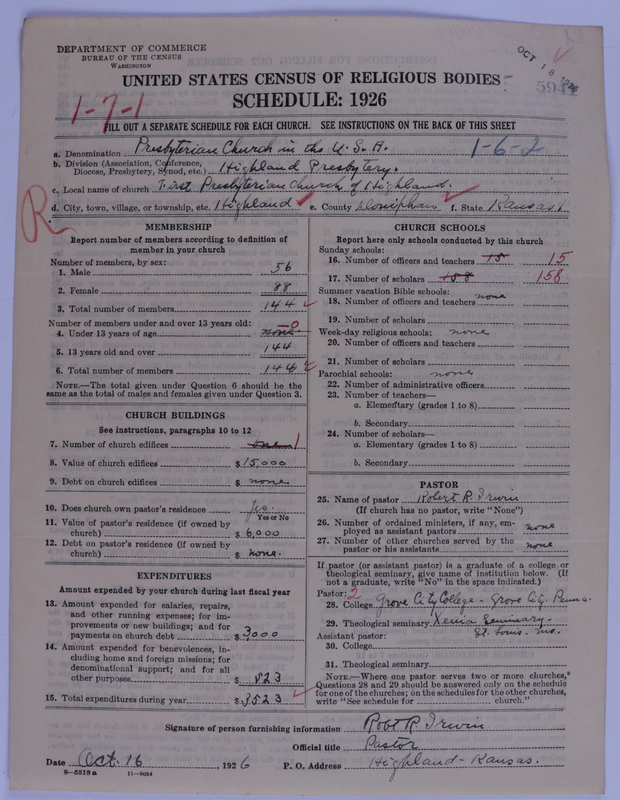 DEPARTMENT OF COMMERCE
BUREAU OF THE CENSUS
WASHINGTON
OCT 18 1926
UNITED STATES CENSUS OF RELIGIOUS BODIES
SCHEDULE: 1926
1-7-1
FILL OUT A SEPARATE SCHEDULE FOR EACH CHURCH. SEE INSTRUCTIONS ON THE BACK OF THIS SHEET
a. Denomination Presbyterian Church in the U.S.A. 1-6-2
b. Division (Association, Conference, Diocese, Presbytery, Synod, etc.) Highland Presbytery.
c. Local name of church First Presbyterian Church of Highland.
d. City, town, village, or township, etc. Highland e. County Doniphan f. State Kansas.
R
MEMBERSHIP
Report number of members according to definition of member in your church
Number of members, by sex:
1. Male 56
2. Female 88
3. Total number of members 144
Number of members under and over 13 years old:
4. Under 13 years of age none 0
5. 13 years old and over 144
6. Total number of members 144
NOTE.—The total given under Question 6 should be the same as the total of males and females given under Question 3.
CHURCH BUILDINGS
See instructions, paragraphs 10 to 12
7. Number of church edifices one 1
8. Value of church edifices $15,000
9. Debt on church edifices $ none
10. Does church own pastor's residence Yes.
Yes or No
11. Value of pastor's residence (if owned by church) $6,000
12. Debt on pastor's residence (if owned by church) $ none.
EXPENDITURES
Amount expended by your church during last fiscal year
13. Amount expended for salaries, repairs, and other running expenses; for improvements or new buildings; and for payments on church debt $3000
14. Amount expended for benevolences, including home and foreign missions; for denominational support; and for all other purposes $ 523
15. Total expenditures during year $3523
CHURCH SCHOOLS
Report here only schools conducted by this church
Sunday schools:
16. Number of officers and teachers 15 15
17. Number of scholars 158 158
Summer vacation Bible schools:
18. Number of officers and teachers none
19. Number of scholars
Week-day religious schools: none
20. Number of officers and teachers
21. Number of scholars
Parochial schools: none
22. Number of administrative officers
23. Number of teachers—
a. Elementary (grades 1 to 8)
b. Secondary
24. Number of scholars—
a. Elementary (grades 1 to 8)
b. Secondary
PASTOR
25. Name of pastor Robert R. Irwin
(If church has no pastor, write "None")
26. Number of ordained ministers, if any, employed as assistant pastors none
27. Number of other churches served by the pastor or his assistants none
If pastor (or assistant pastor) is a graduate of a college or theological seminary, give name of institution below. (If not a graduate, write "No" in the space indicated.)
Pastor: 2
28. College Grove City College - Grove City Penna.
29. Theological seminary Xenia Seminary.
Assistant pastor: St. Louis, Mo.
30. College
31. Theological seminary
NOTE.—Where one pastor serves two or more churches, Questions 28 and 29 should be answered only on the schedule for one of the churches; on the schedules for the other churches, write "See schedule for church."
Signature of person furnishing information Robt R. Irwin
Official title Pastor
Date Oct. 16, 1926 P. O. Address Highland - Kansas.
8-5518a 11-9054